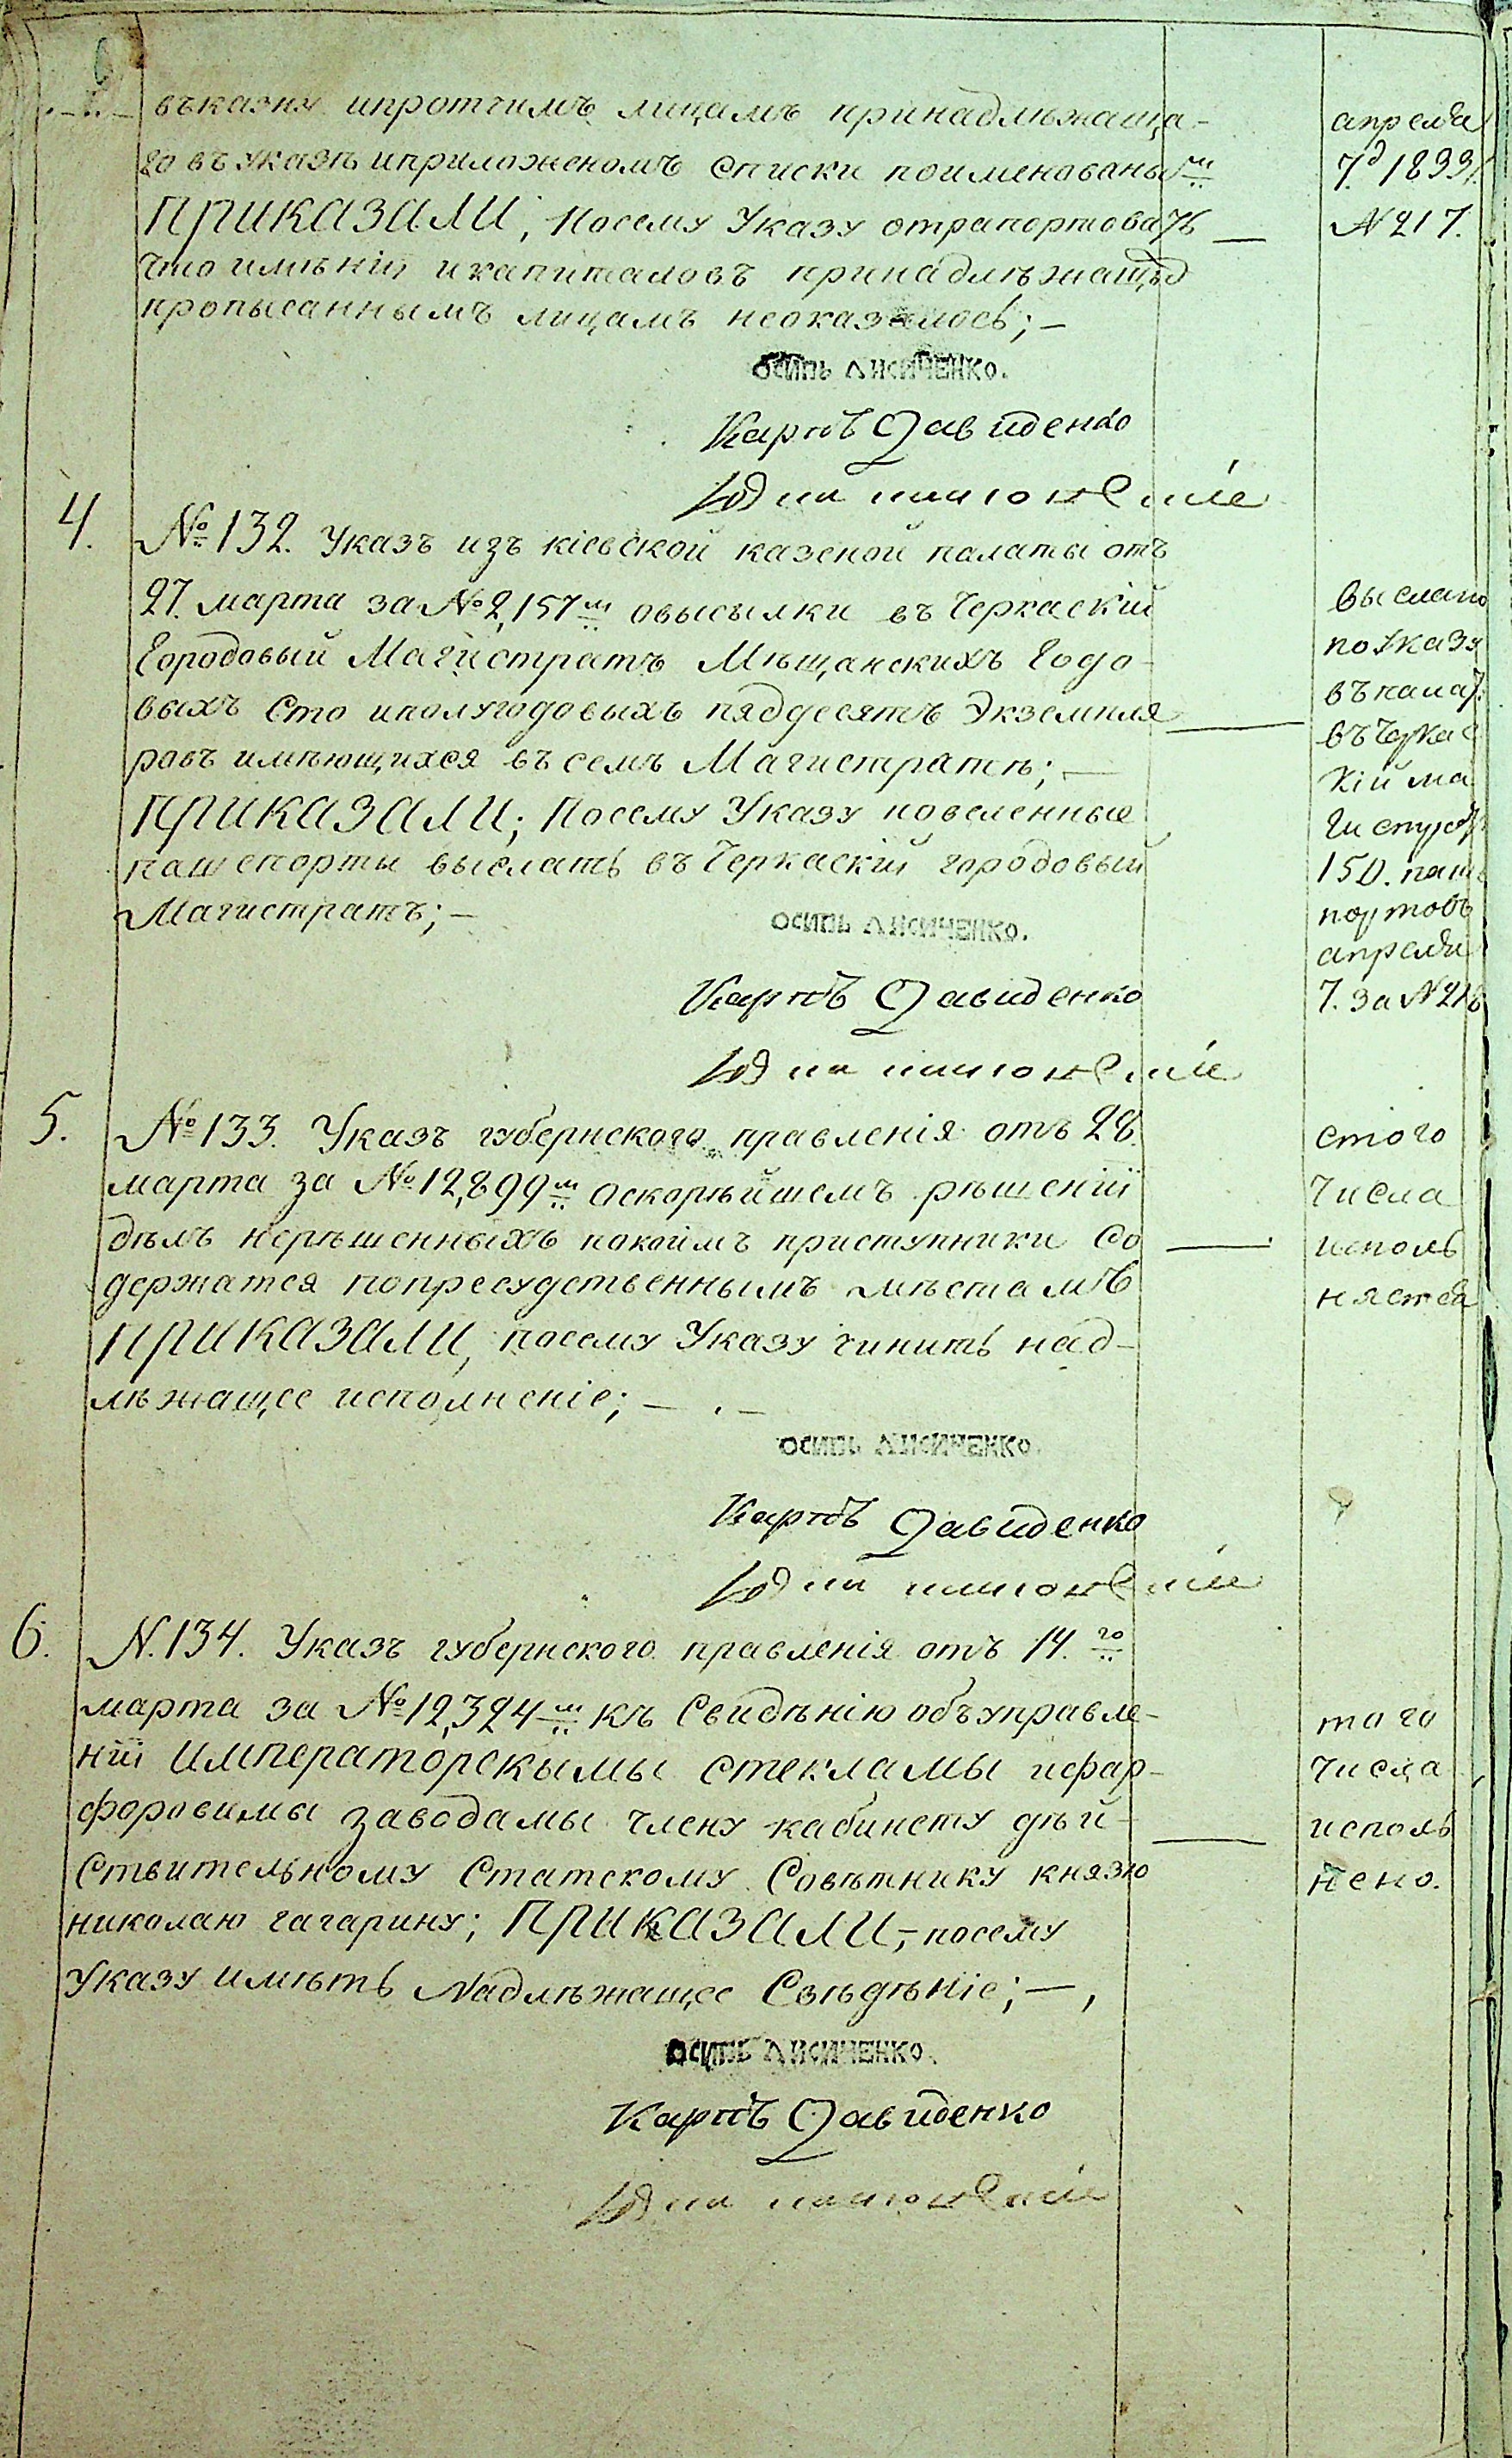 въказну ипротчимъ лицамъ принадлѣжаща-
го въ указѣ иприложеномъ списки поименованы
апреля
7д 1833
ПРИКАЗАЛИ, посему Указу отрапортовать —
№ 217.
что имѣній икапиталовъ принадлѣжащыхъ
прописаннымъ лицамъ неоказалось; —
ОСИПЬ ЛИСИЧЕНКО.
Карпъ Давиденко
4.
№ 132. Указъ изъ кіевской казеной палаты отъ
27. марта за № 2,157м овысылки въ Черкаскій
Городовый Магистратъ Мѣщанскихъ Годо-
выхъ Сто иполугодовыхъ пядесятъ Экземпля
ровъ имѣющихся въ семъ Магистратѣ; —
ПРИКАЗАЛИ; Посему Указу повеленные
пашпорты выслать въ Черкаскій городовый
Магистратъ; —
выслано
по Указу
въ палат.
въ Черкас
кій ма
гистрат
150. паш
портовъ
апреля
7. за № 216
ОСИПЬ ЛИСИЧЕНКО.
Карпъ Давиденко
5.
№ 133. Указъ губернского правленія отъ 28.
марта за № 12,899м оскорѣйшемъ рѣшеніи
дѣлъ нерѣшенныхъ покоимъ приступники Со
держатся попресудственнымъ мѣстамъ
ПРИКАЗАЛИ, посему Указу чинить над-
лѣжащее исполненіе; — . —
стого
числа
исполь
няется
ОСИПЬ ЛИСИЧЕНКО.
Карпъ Давиденко
6.
N. 134. Указъ губернского правленія отъ 14.го
марта за № 12,324м къ Свидѣнію объуправле-
ніи Императорскымы стекламы ифар-
форовимы заводамы члену кабинету дѣй-
ствительному Статскому Совѣтнику князю
николаю гагарину; ПРИКАЗАЛИ, — посему
Указу имѣть Надлѣжащее Свѣдѣніе; —,
того
числа
исполь
нено.
ОСИПЬ ЛИСИЧЕНКО.
Карпъ Давиденко